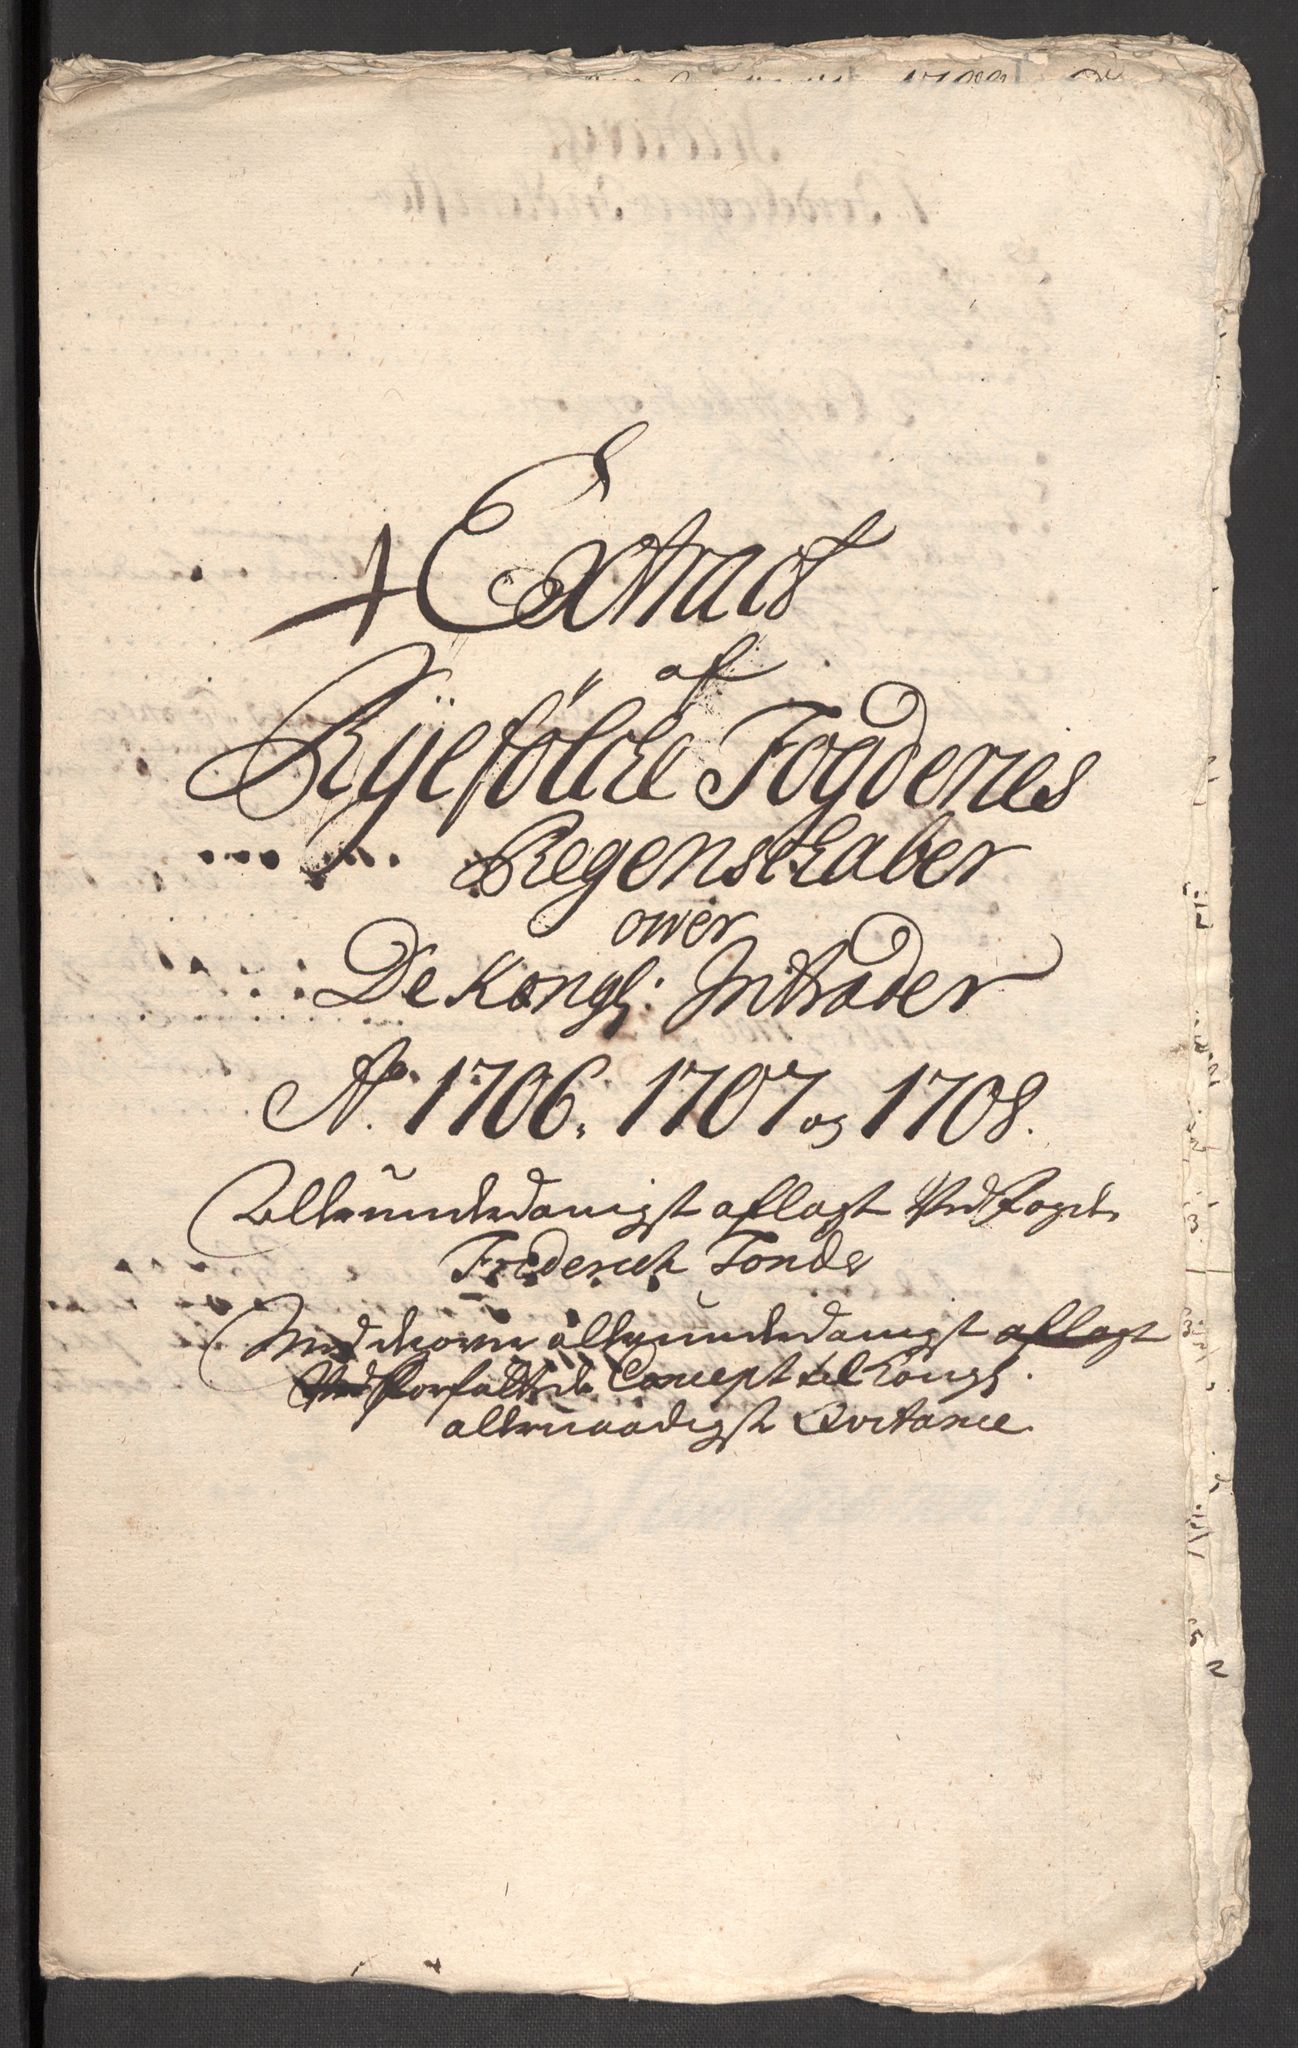 Extract
af
Ryefölcke Fogderies
Regenskaber
over
De Kongl: Intrader
Ao. 1706, 1707 og 1708.
Allerunderdanigst aflagt Ved Fogden
Frederich Tonder
Med allerunderdanigst aflagt
Ved Forfattede Concept til Kongl.
allernaadigste Qvitance